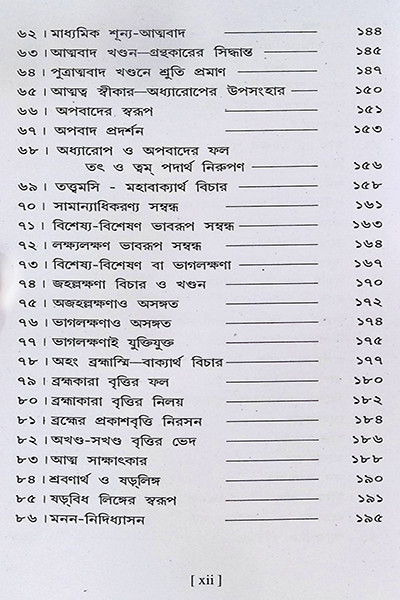 ৬২। মাধ্যমিক শূন্য-আত্মবাদ ——— ১৪৪
৬৩। আত্মবাদ খণ্ডন—গ্রন্থকারের সিদ্ধান্ত ——— ১৪৫
৬৪। পুত্রাত্মবাদ খণ্ডনে শ্রুতি প্রমাণ ——— ১৪৭
৬৫। আত্মত্ব স্বীকার—অধ্যারোপের উপসংহার ——— ১৫০
৬৬। অপবাদের স্বরূপ ——— ১৫১
৬৭। অপবাদ প্রদর্শন ——— ১৫৩
৬৮। অধ্যারোপ ও অপবাদের ফল
তৎ ও ত্বম্ পদার্থ নিরুপণ ——— ১৫৬
৬৯। তত্ত্বমসি - মহাবাক্যার্থ বিচার ——— ১৫৮
৭০। সামান্যাধিকরণ্য সম্বন্ধ ——— ১৬১
৭১। বিশেষ্য-বিশেষণ ভাবরূপ সম্বন্ধ ——— ১৬৩
৭২। লক্ষ্যলক্ষণ ভাবরূপ সম্বন্ধ ——— ১৬৪
৭৩। বিশেষ্য-বিশেষণ বা ভাগলক্ষণা ——— ১৬৭
৭৪। জহল্লক্ষণা বিচার ও খণ্ডন ——— ১৭০
৭৫। অজহল্লক্ষণাও অসঙ্গত ——— ১৭২
৭৬। ভাগলক্ষণাও অসঙ্গত ——— ১৭৪
৭৭। ভাগলক্ষণাই যুক্তিযুক্ত ——— ১৭৫
৭৮। অহং ব্রহ্মাস্মি—বাক্যার্থ বিচার ——— ১৭৭
৭৯। ব্রহ্মকারা বৃত্তির ফল ——— ১৮০
৮০। ব্রহ্মাকারা বৃত্তির নিলয় ——— ১৮২
৮১। ব্রহ্মের প্রকাশবৃত্তি নিরসন ——— ১৮৪
৮২। অখণ্ড-সখণ্ড বৃত্তির ভেদ ——— ১৮৬
৮৩। আত্ম সাক্ষাৎকার ——— ১৮৮
৮৪। শ্রবণার্থ ও ষড়্‌লিঙ্গ ——— ১৯০
৮৫। ষড়্‌বিধ লিঙ্গের স্বরূপ ——— ১৯১
৮৬। মনন-নিদিধ্যাসন ——— ১৯৫
[ xii ]